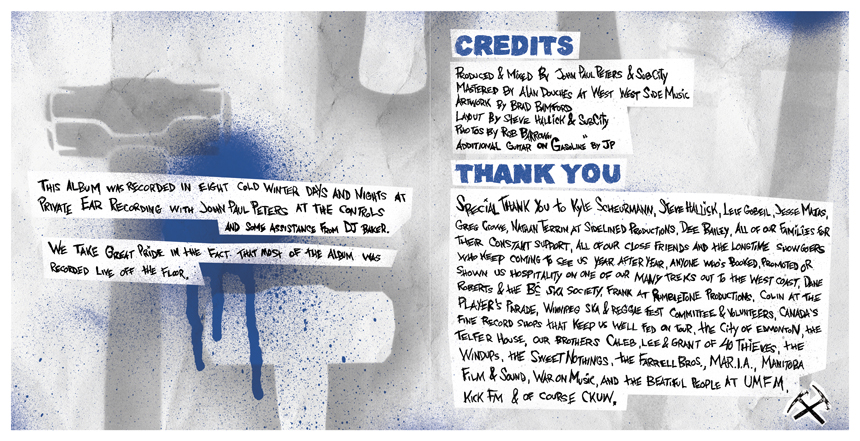 THIS ALBUM WAS RECORDED IN EIGHT COLD WINTER DAYS AND NIGHTS AT
PRIVATE EAR RECORDING WITH JOHN PAUL PETERS AT THE CONTROLS
AND SOME ASSISTANCE FROM DJ BAKER.
WE TAKE GREAT PRIDE IN THE FACT THAT MOST OF THE ALBUM WAS
RECORDED LIVE OFF THE FLOOR.
CREDITS
PRODUCED & MIXED BY JOHN PAUL PETERS & SUBCITY
MASTERED BY ALAN DOUCHES AT WEST WEST SIDE MUSIC
ARTWORK BY BRAD BAMFORD
LAYOUT BY STEVE HALLICK & SUBCITY
PHOTOS BY ROB
ADDITIONAL GUITAR ON "GASOLINE" BY JP
THANK YOU
SPECIAL THANK YOU TO KYLE SCHEURMANN, STEVE HALLICK, LEIF GOBEIL, JESSE MATAS,
GREG CROWE, NATHAN TERRIN AT SIDELINED PRODUCTIONS, DEE BAILEY, ALL OF OUR FAMILIES FOR
THEIR CONSTANT SUPPORT, ALL OF OUR CLOSE FRIENDS AND THE LONGTIME SHOWGOERS
WHO KEEP COMING TO SEE US YEAR AFTER YEAR, ANYONE WHO'S BOOKED, PROMOTED OR
SHOWN US HOSPITALITY ON ONE OF OUR MANY TREKS OUT TO THE WEST COAST, DANE
ROBERTS & THE BC SKA SOCIETY, FRANK AT RUMBLETONE PRODUCTIONS, COLIN AT THE
PLAYER'S PARADE, WINNIPEG SKA & REGGAE FEST COMMITTEE & VOLUNTEERS, CANADA'S
FINE RECORD SHOPS THAT KEEP US WELL FED ON TOUR, THE CITY OF EDMONTON, THE
TELFER HOUSE, OUR BROTHERS CALEB, LEE & GRANT OF 40 THIEVES, THE
WINDUPS, THE SWEET NOTHINGS, THE FARRELL BROS., MAR.I.A., MANITOBA
FILM & SOUND, WAR ON MUSIC, AND THE BEATIFUL PEOPLE AT UMFM,
KICK FM & OF COURSE CKUW.